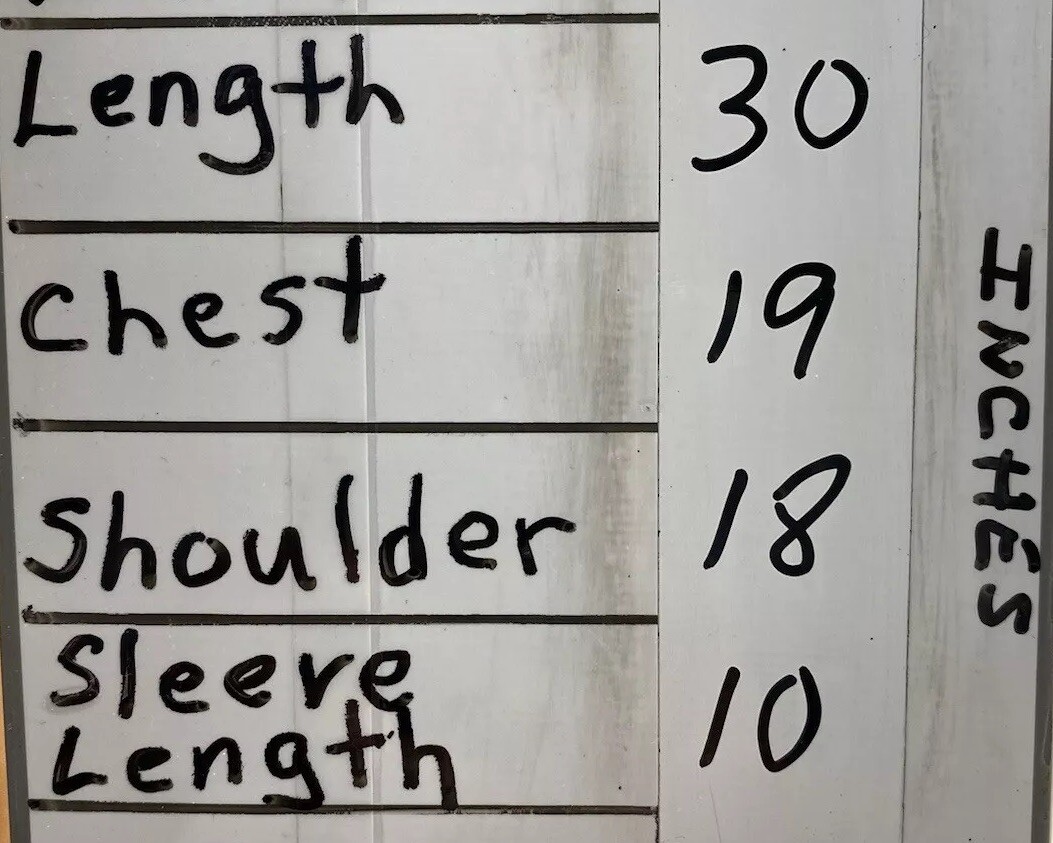 Length 30
Chest 19
Shoulder 18
Sleeve
Length 10
INCHES